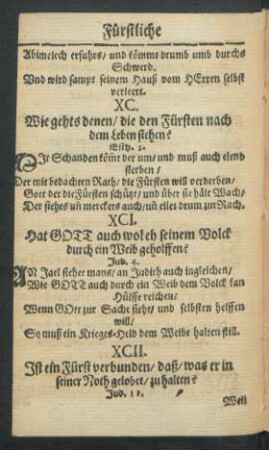 Fürstliche
Abimelech erfuhrs/ und kömms drumb umb durchs
Schwerd.
Und wird sampt seinem Hauß vom HErren selbst
verleert.
XC.
Wie gehts denen/ die den Fürsten nach
dem Leben stehen?
Esth. 2.
Mit Schanden kömt der um/ und muß auch elend
sterben/
Der mit bedachten Rath/ die Fürsten will verderben/
Gott der die Fürsten schützt/ und über sie hält Wach/
Der siehes uñ merckets auch/ uñ eilet drum zur Rach.
XCI.
Hat GOTT auch wol eh seinem Volck
durch ein Weib geholffen?
Jud. 4.
AN Jael siehet mans/ an Judith auch ingleichen/
Wie GOTT auch durch ein Weib dem Volck kan
Hülffe reichen/
Wenn GOtt zur Sache sieht/ und selbsten helffen
will/
So muß ein Krieges-Held dem Weibe halten still.
XCII.
Ist ein Fürst verbunden/ daß/ was er in
seiner Noth gelobet/ zu halten?
Jud. 11.
Weil